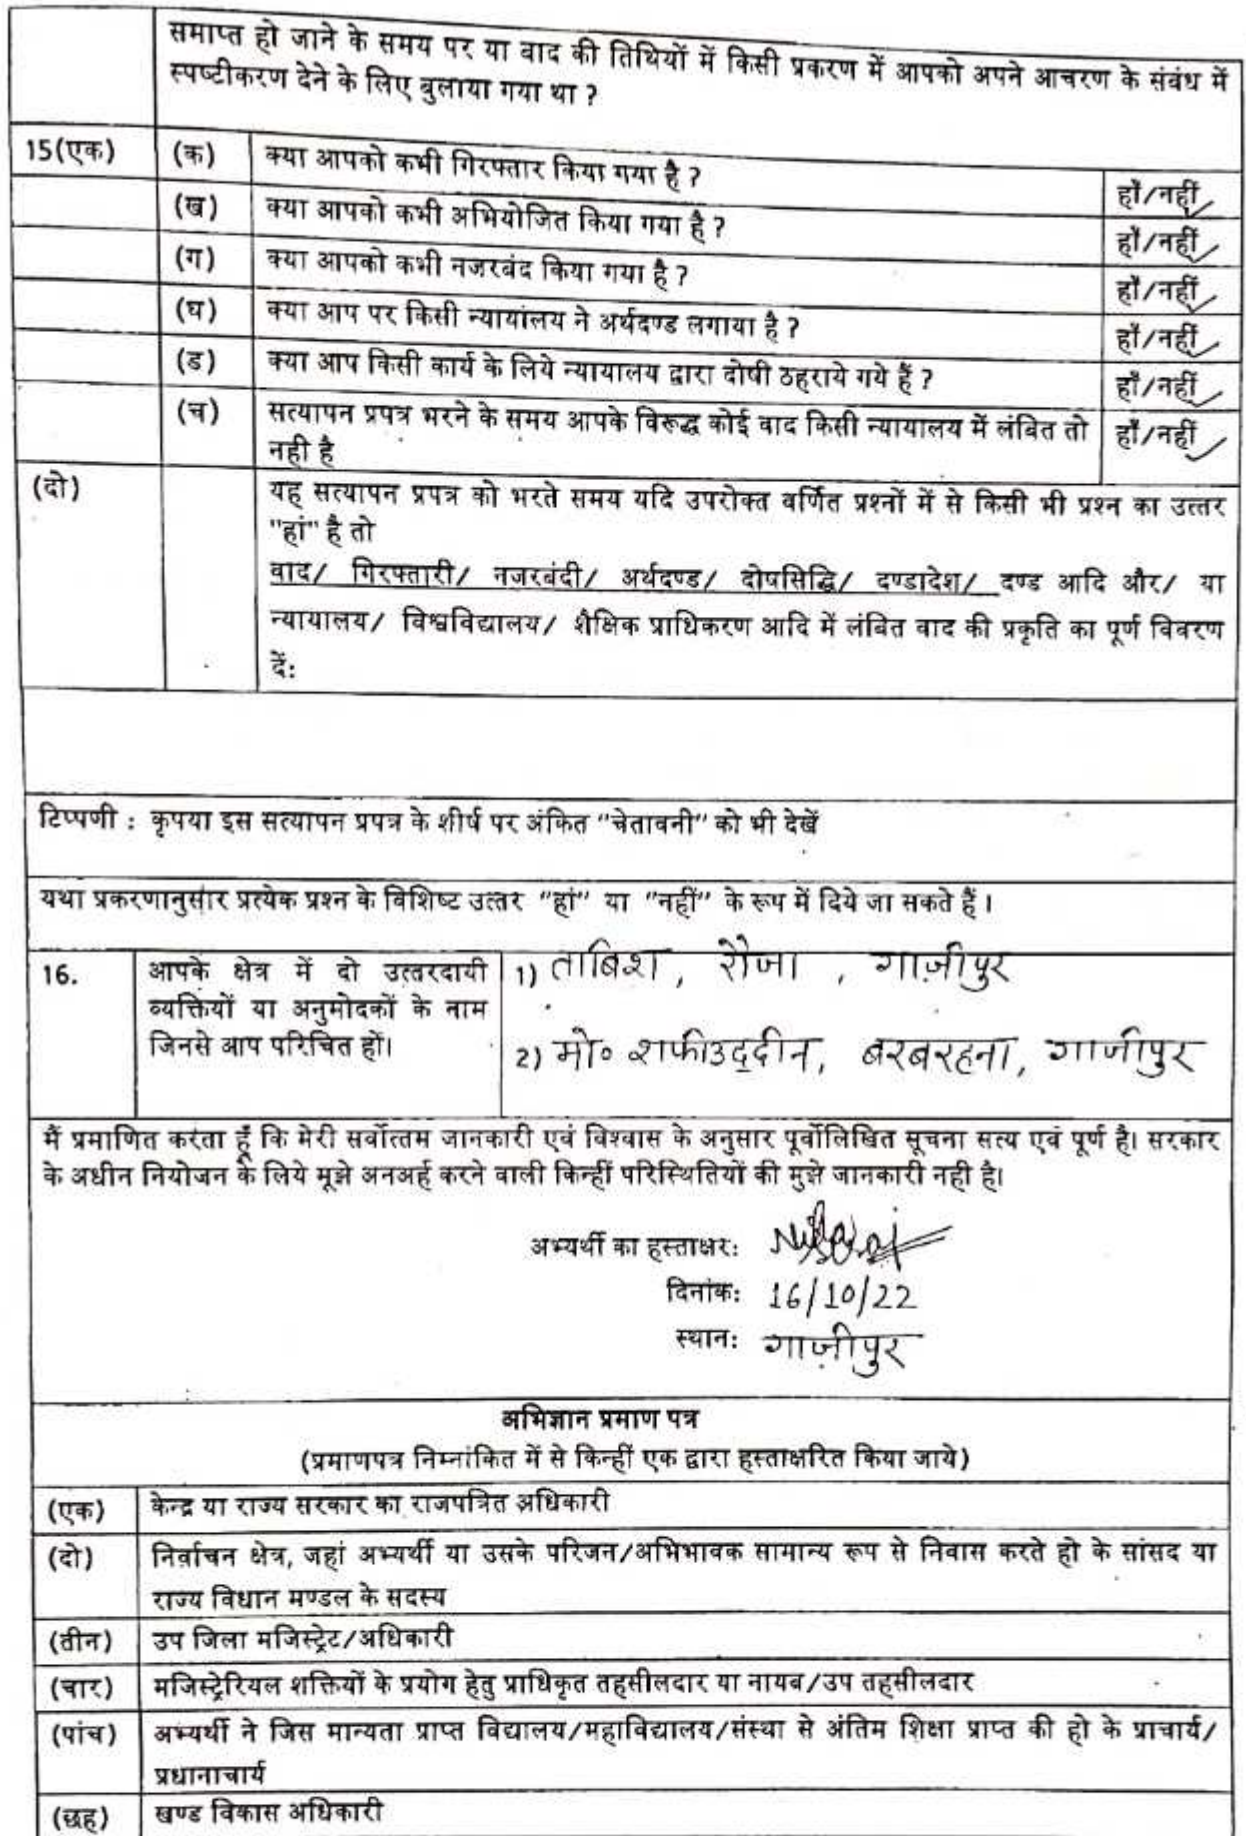 समाप्त हो जाने के समय पर या वाद की तिथियों में किसी प्रकरण में आपको अपने आचरण के संबंध में
स्पष्टीकरण देने के लिए बुलाया गया था ?
15(एक) (क) क्या आपको कभी गिरफ्तार किया गया है ? हाँ/नहीं
(ख) क्या आपको कभी अभियोजित किया गया है ? हाँ/नहीं
(ग) क्या आपको कभी नजरबंद किया गया है ? हाँ/नहीं
(घ) क्या आप पर किसी न्यायांलय ने अर्थदण्ड लगाया है ? हाँ/नहीं
(ड) क्या आप किसी कार्य के लिये न्यायालय द्वारा दोषी ठहराये गये हैं ? हाँ/नहीं
(च) सत्यापन प्रपत्र भरने के समय आपके विरूद्ध कोई वाद किसी न्यायालय में लंबित तो हाँ/नहीं
नही है
(दो) यह सत्यापन प्रपत्र को भरते समय यदि उपरोक्त वर्णित प्रश्नों में से किसी भी प्रश्न का उत्तर
"हां" है तो
वाद/ गिरफ्तारी/ नजरबंदी/ अर्थदण्ड/ दोषसिद्धि/ दण्डादेश/ दण्ड आदि और/ या
न्यायालय/ विश्वविद्यालय/ शैक्षिक प्राधिकरण आदि में लंबित वाद की प्रकृति का पूर्ण विवरण
दें:
टिप्पणी : कृपया इस सत्यापन प्रपत्र के शीर्ष पर अंकित "चेतावनी" को भी देखें
यथा प्रकरणानुसार प्रत्येक प्रश्न के विशिष्ट उत्तर "हां" या "नहीं" के रूप में दिये जा सकते हैं।
16. आपके क्षेत्र में दो उत्तरदायी 1) ताबिश, रौजा , गाज़ीपुर
व्यक्तियों या अनुमोदकों के नाम
जिनसे आप परिचित हों। 2) मो० शफीउद्दीन, बरबरहना, गाजीपुर
मैं प्रमाणित करता हूँ कि मेरी सर्वोत्तम जानकारी एवं विश्वास के अनुसार पूर्वोलिखित सूचना सत्य एवं पूर्ण है। सरकार
के अधीन नियोजन के लिये मूझे अनअर्ह करने वाली किन्हीं परिस्थितियों की मुझे जानकारी नही है।
अभ्यर्थी का हस्ताक्षर:
दिनांक: 16/10/22
स्थान: गाज़ीपुर
अभिज्ञान प्रमाण पत्र
(प्रमाणपत्र निम्नांकित में से किन्हीं एक द्वारा हस्ताक्षरित किया जाये)
(एक) केन्द्र या राज्य सरकार का राजपत्रित अधिकारी
(दो) निर्वाचन क्षेत्र, जहां अभ्यर्थी या उसके परिजन/अभिभावक सामान्य रूप से निवास करते हो के सांसद या
राज्य विधान मण्डल के सदस्य
(तीन) उप जिला मजिस्ट्रेट/अधिकारी
(चार) मजिस्ट्रेरियल शक्तियों के प्रयोग हेतु प्राधिकृत तहसीलदार या नायब/उप तहसीलदार
(पांच) अभ्यर्थी ने जिस मान्यता प्राप्त विद्यालय/महाविद्यालय/संस्था से अंतिम शिक्षा प्राप्त की हो के प्राचार्य/
प्रधानाचार्य
(छह) खण्ड विकास अधिकारी